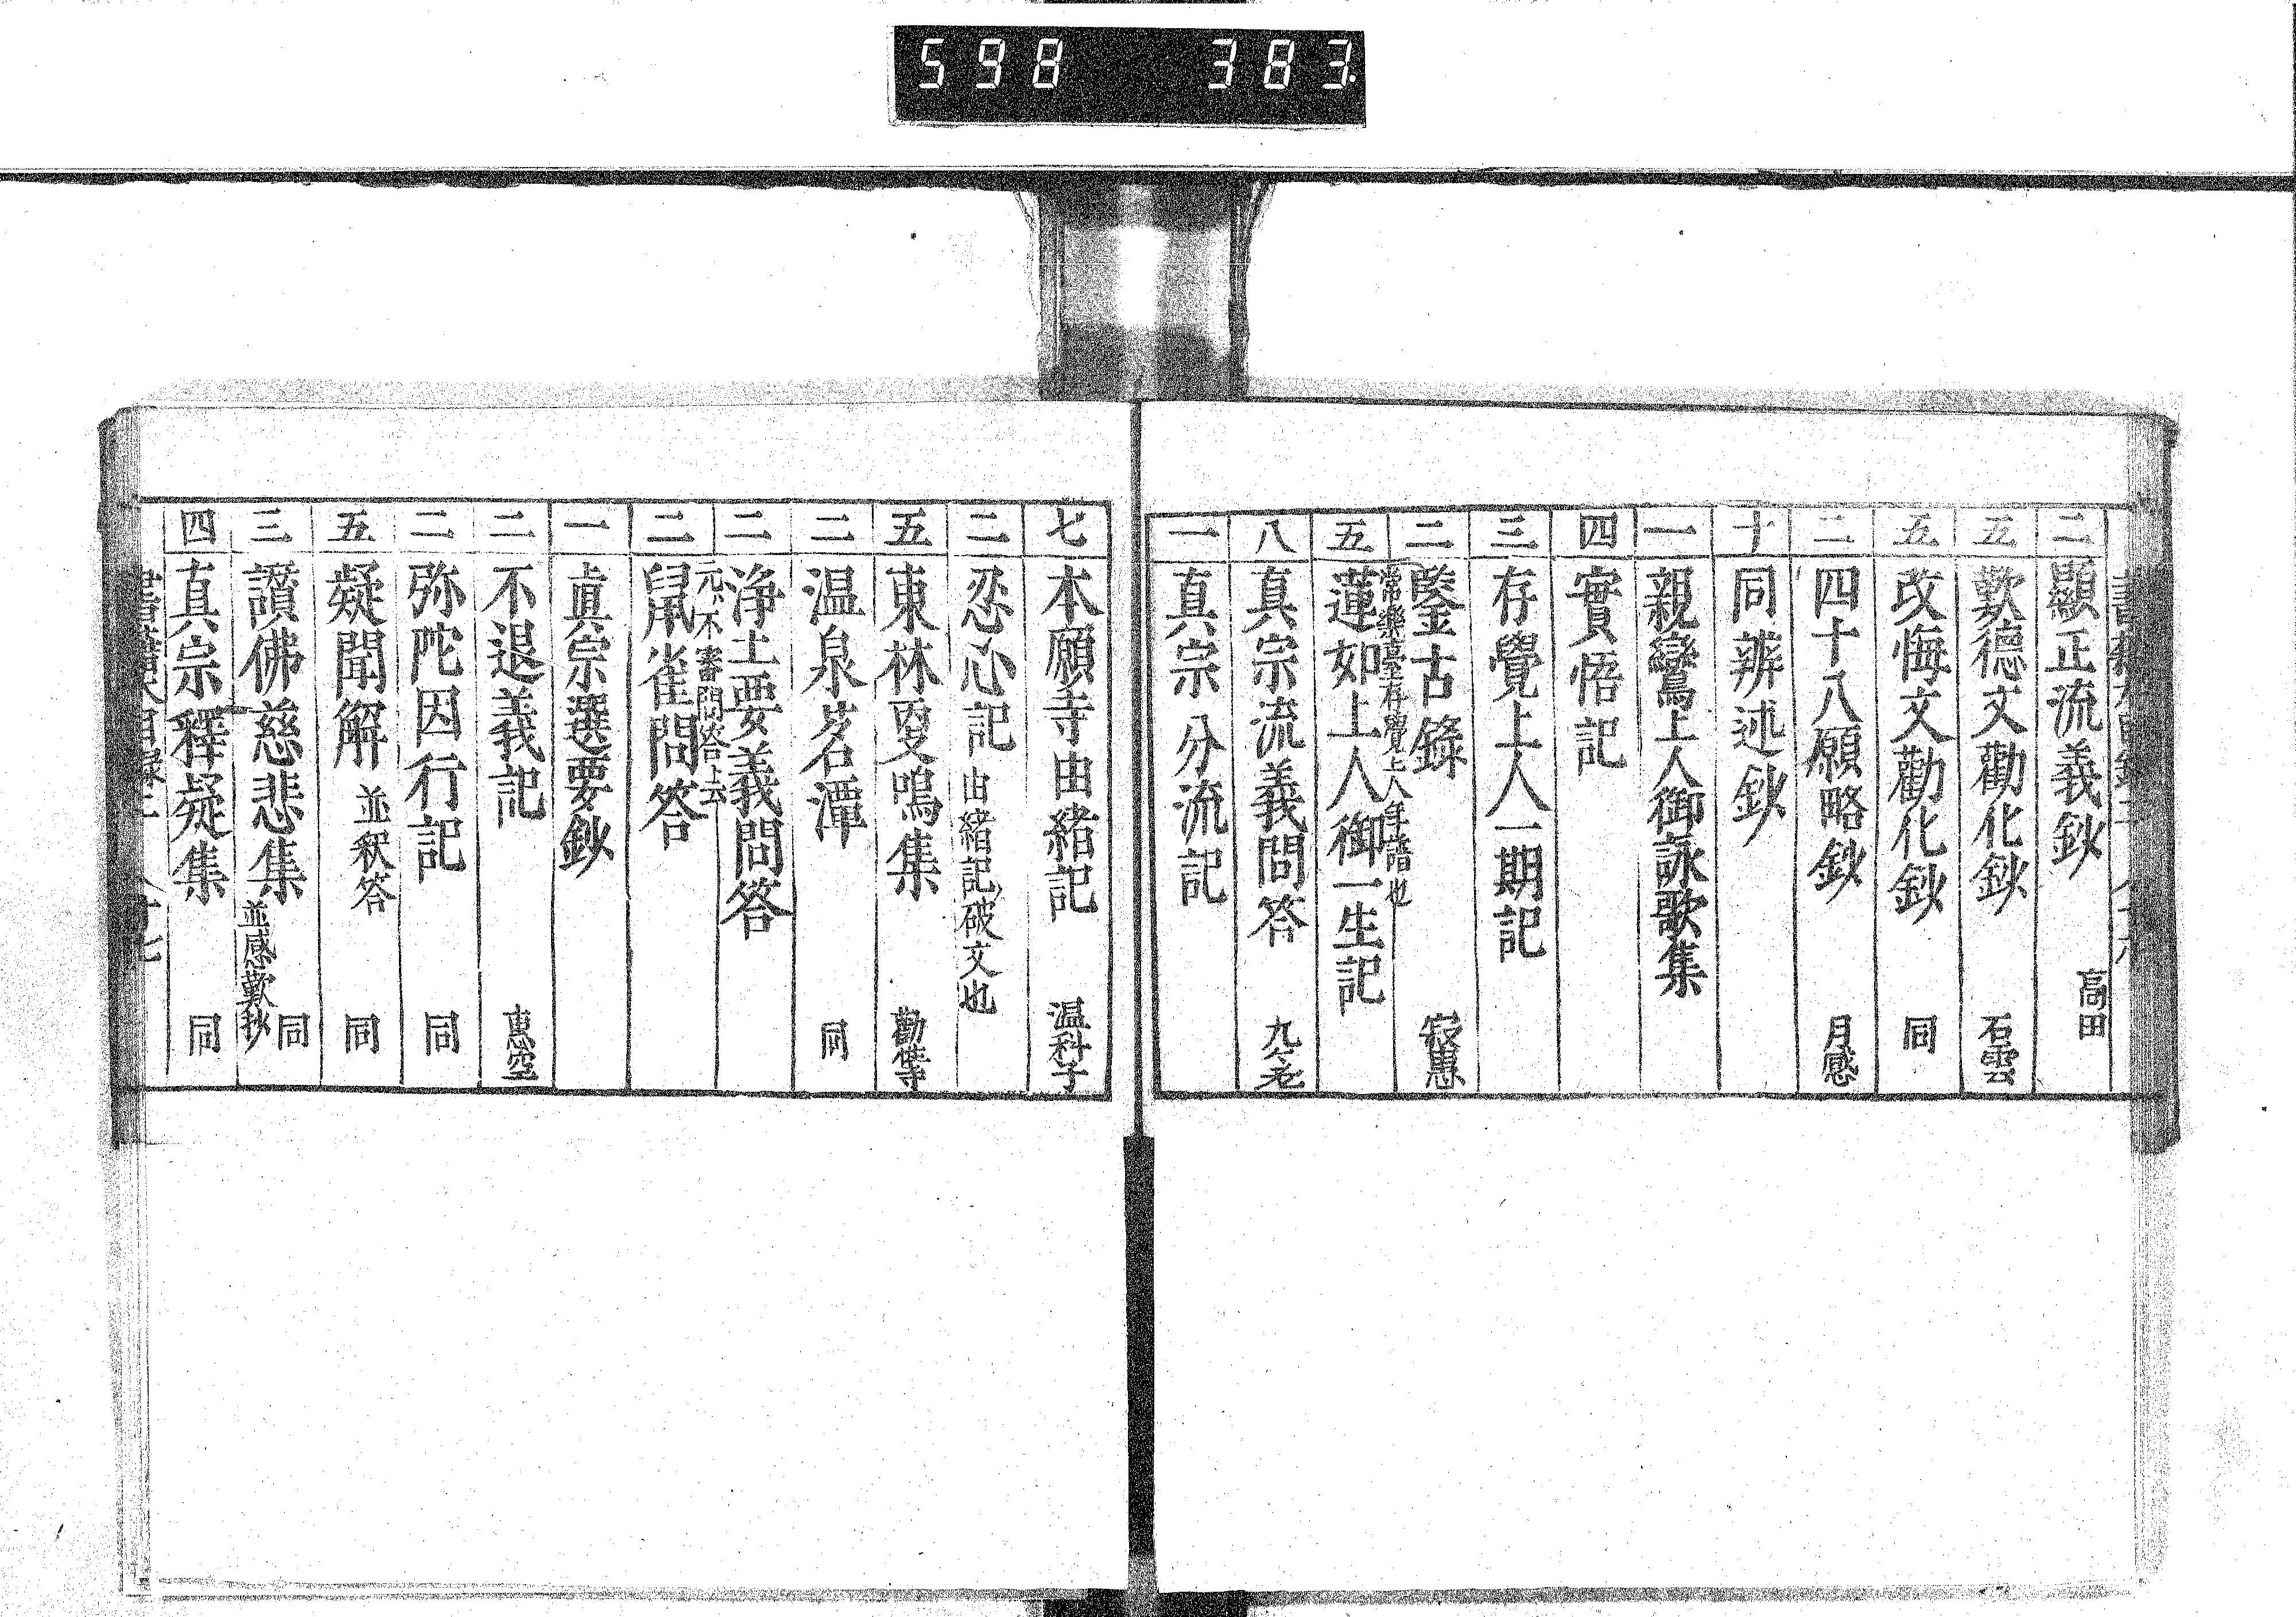 598 383.
二 顯正流義鈔 高田
五 歎德文勸化鈔 石雲
五 改悔文勸化鈔 同
二 四十八願略鈔 月感
十 同辨述鈔
一 親鸞上人御詠歌集
四 實悟記
三 存覺上人一期記
二 鑒古錄 寂惠
常樂臺存覺上人年譜也
五 蓮如上人御一生記
八 真宗流義問答
一 真宗分流記
七 本願寺由緒記 温科子
二 忍心記 由緒記破文也
五 東林夏鳴集
二 温泉茗潭 同
二 浄土要義問答
元不審問答上云
二 䑕雀問答
一 眞宗選要鈔
二 不退義記 惠空
二 弥陀因行記 同
五 疑聞解 並釈答 同
三 讃佛慈悲集 並感歎抄 同
四 真宗釋疑集 同